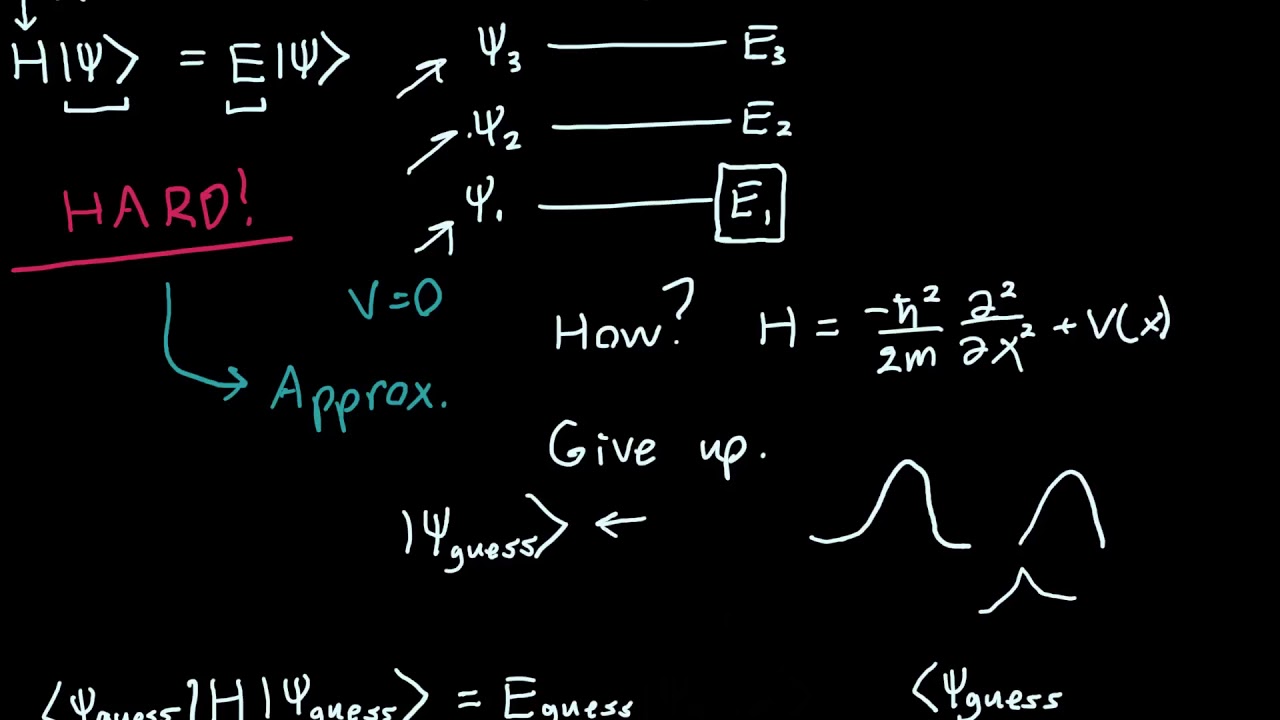 H|Ψ⟩ = E|Ψ⟩
Ψ₃ E₃
Ψ₂ E₂
Ψ₁ E₁
HARD!
V=0
How? H = -ħ²/2m ∂²/∂x² + V(x)
Approx.
Give up.
|Ψguess⟩ ←
⟨Ψguess|H|Ψguess⟩ = Eguess
⟨Ψguess